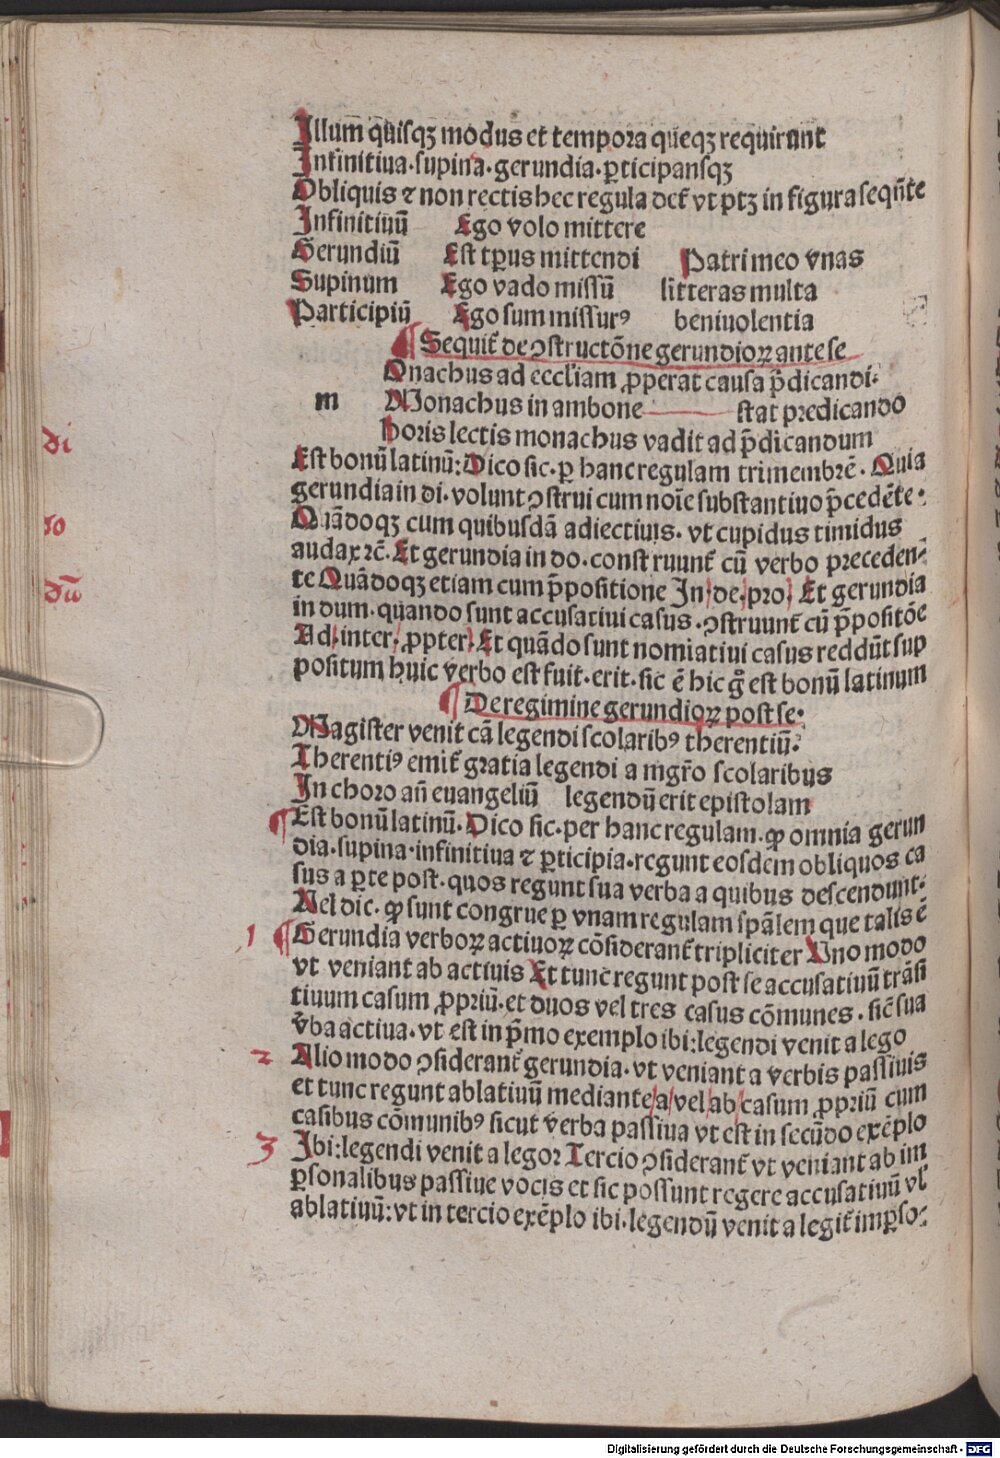 Illum̄ quisqꝫ modus et tempora queqꝫ requirunt
Infinitiua·supina·gerundia·ꝑticipansqꝫ
Obliquis ⁊ non rectis hec regula det᷑ vt ptꝫ in figura seqn̄te
Infinitiuū Ego volo mittere
Gerundiū Est tp̄us mittendi Patri meo v̄nas
Supinum Ego vado missū litteras multa
Participiū Ego sum missurꝰ beniuolentia
¶ Sequit᷑ de ꝯstructōne gerundioꝝ ante se
Onachus ad eccl̄iam ꝓperat causa p̄dicandi·
m Monachus in ambone stat predicando
horis lectis monachus vadit ad p̄dicandum
di
Est bonū latinū: Dico sic·ꝑ hanc regulam trimembrē· Quia
gerundia in di·volunt ꝯstrui cum noīe substantiuo p̄cedēte·
do
Quādoqꝫ cum quibusdā adiectiuis· vt cupidus timidus
audax ⁊c̄· Et gerundia in do·construunt᷑ cū verbo preceden⸗
dū
te Quādoqꝫ etiam cum p̄positione In/de/pro/ Et gerundia
in dum·quando sunt accusatiui casus·ꝯstruunt᷑ cū p̄positōe
Ad/inter/ꝓpter/ Et quādo sunt nomiatiui casus reddūt sup
positum huic verbo est fuit·erit·sic ē hic g̊ est bonū latinum
¶ De regimine gerundioꝝ post se·
Magister venit cā legendi scolaribꝰ therentiū·
Therentiꝰ emit᷑ gratia legendi a mgr̄o scolaribus
In choro an̄ euangeliū legendū erit epistolam
¶ Est bonū latinū· Dico sic·per hanc regulam·ꝙ omnia gerun
dia·supina·infinitiua ⁊ ꝑticipia·regunt eosdem obliquos ca
sus a ꝑte post·quos regunt sua verba a quibus descendunt·
Vel dic·ꝙ sunt congrue ꝑ vnam regulam spālem que talis ē
1 ¶ Gerundia verboꝝ actiuoꝝ cōsiderant᷑ tripliciter Uno modo
vt veniant ab actiuis Et tunc regunt post se accusatiuū trāsi
tiuum casum ꝓpriū·et duos vel tres casus cōmunes·sic̄ sua
v̄ba actiua·vt est in p̄mo exemplo ibi:legendi venit a lego
2 Alio modo ꝯsiderant᷑ gerundia·vt veniant a verbis passiuis
et tunc regunt ablatiuū mediante/a/vel/ab/casum ꝓpriū cum
casibus cōmunibꝰ sicut verba passiua vt est in secūdo exēplo
3 Ibi:legendi venit a legor Tercio ꝯsiderant᷑ vt veniant ab im
ꝑsonalibus passiue vocis et sic possunt regere accusatiuū vl̄
ablatiuū:vt in tercio exēplo ibi·legendū venit a legit᷑ imꝑso⸗
Digitalisierung gefördert durch die Deutsche Forschungsgemeinschaft - DFG